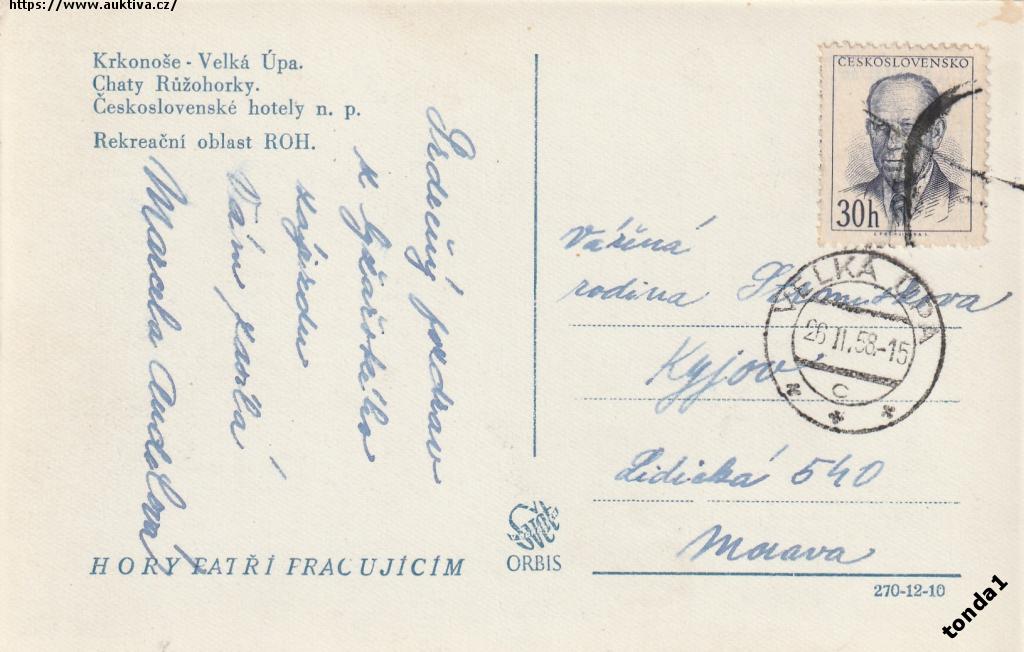 https://www.auktiva.cz/
Krkonoše - Velká Úpa.
Chaty Růžohorky.
Československé hotely n. p.
Rekreační oblast ROH.
Srdečný pozdrav
z
zájezdu
Vám zasílá
Marcela
HORY PATŘÍ PRACUJÍCÍM
ORBIS
ČESKOSLOVENSKO
30h
VELKÁ ÚPA
26.II.58.-15
C
Vážená
rodina
Kyjov
Lidická 540
Morava
270-12-10
tonda1